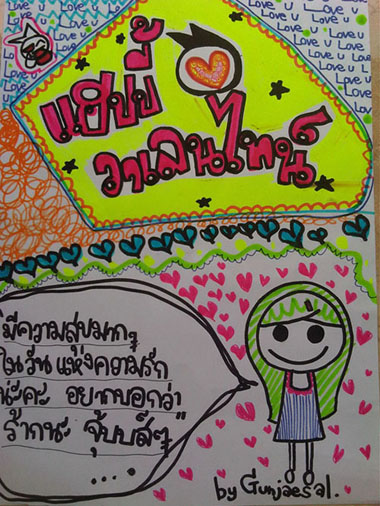 Love u Love u Love u Love u
แฮปปี้
วาเลนไทน์
มีความสุขมากๆ
ในวันแห่งความรัก
นะคะ อยากบอกว่า
ร้ากนะ จุ้บบส์ๆ
....
by Gunjaesal.